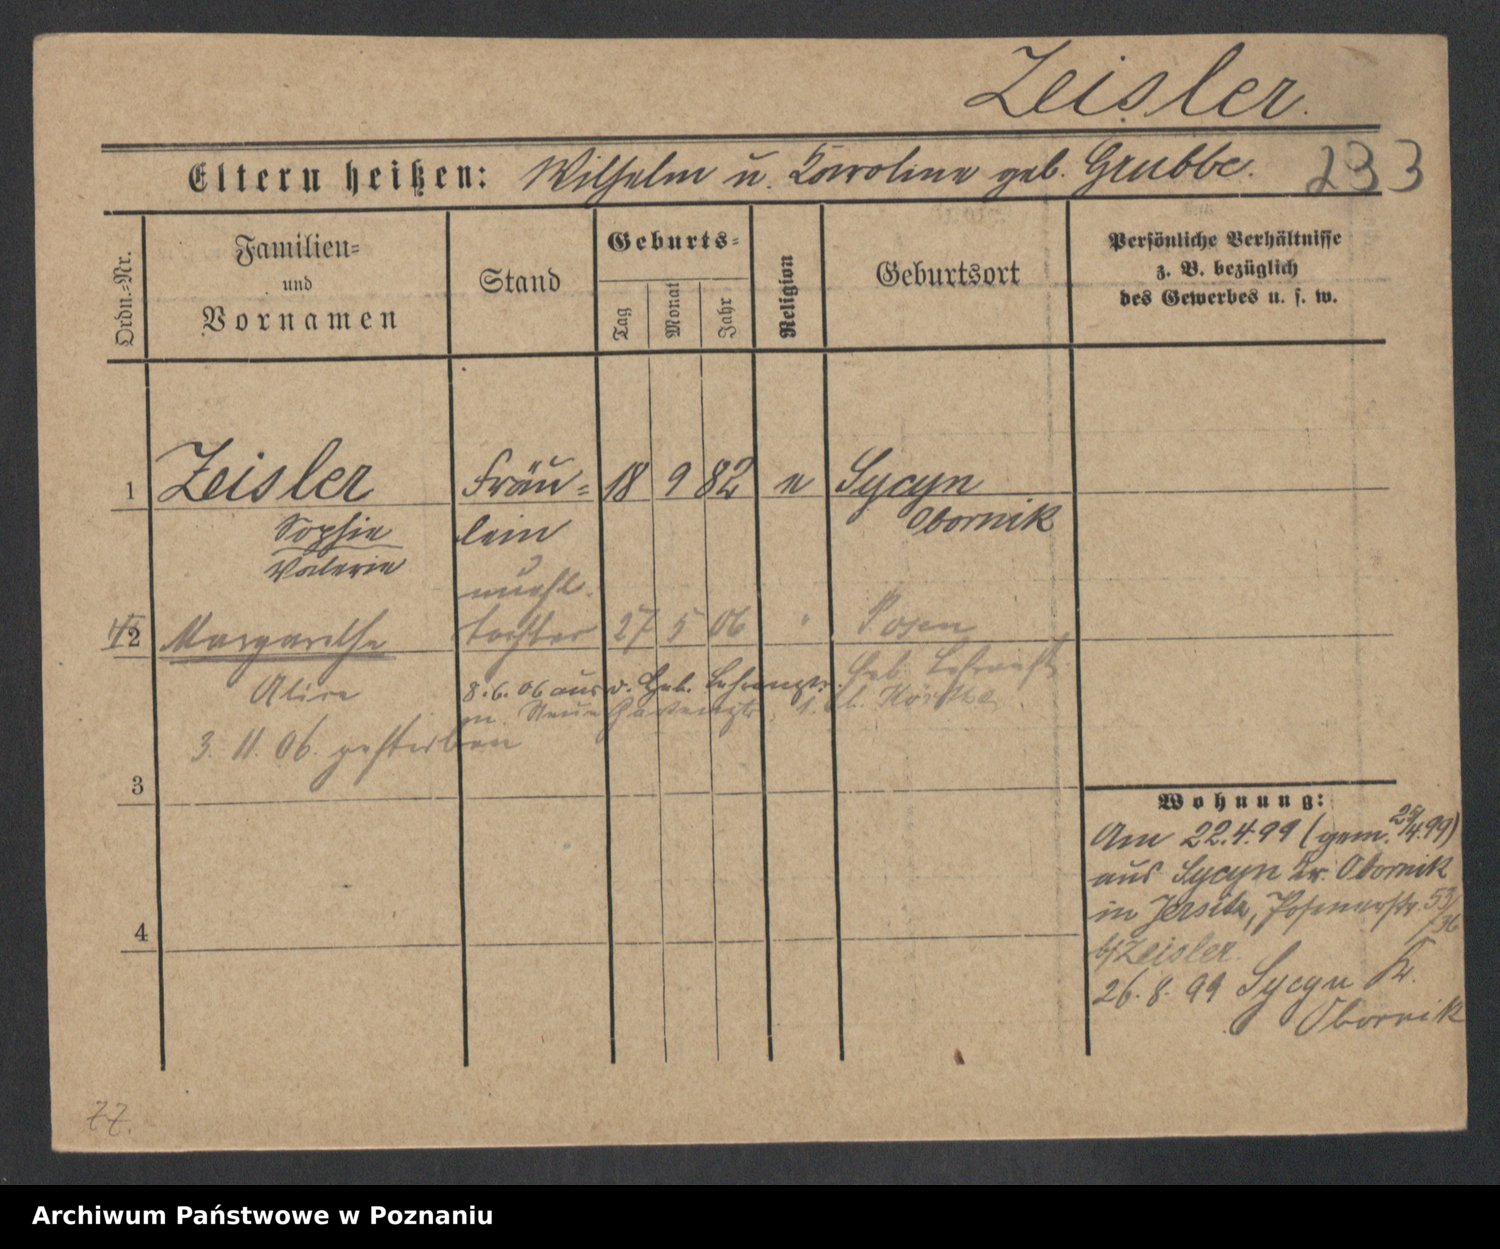 Zeisler.
Eltern heißen: Wilhelm u. Karoline geb. Grubbe. 233
Ordn.-Nr.
Familien-
und
Vornamen
Stand
Geburts-
Tag
Monat
Jahr
Religion
Geburtsort
Persönliche Verhältnisse
z. B. bezüglich
des Gewerbes u. s. w.
1 Zeisler Fräu- 18 9 82 e Sycyn
Sophie lein Obornik
Valerie
unehl.
2 Margarethe tochter 27 5 06 " Posen
Alice
8.6.06 aus d. Geb.
3. 11. 06. gestorben
3
4
Wohnung:
Am 22.4.99 (gem. 25/4.99)
aus Sycyn Kr. Obornik
in Jersitz, Posenerstr. 53/
/36
b/ Zeisler.
26.8.99 Sycyn Kr.
Obornik
77.
Archiwum Państwowe w Poznaniu